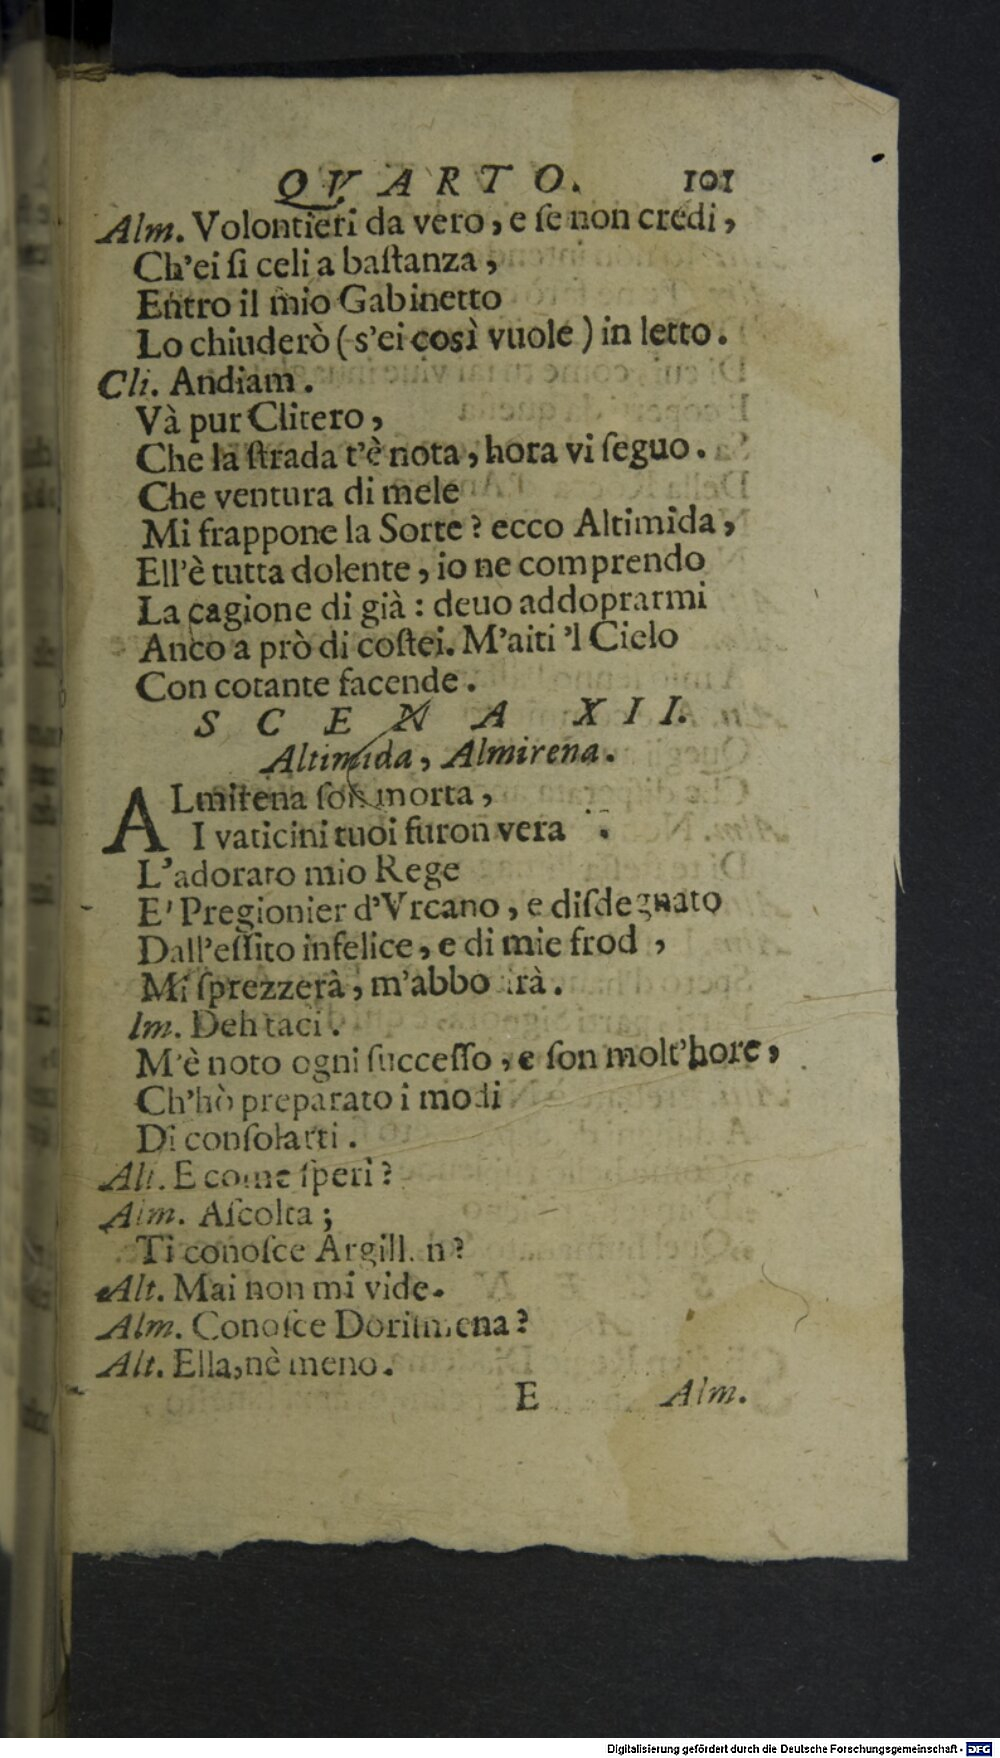 QVARTO. 101
Alm. Volontieri da vero, e ſe non credi,
Ch'ei ſi celi a baſtanza,
Entro il mio Gabinetto
Lo chiuderò (s'ei così vuole) in letto.
Cli. Andiam.
Và pur Clitero,
Che la ſtrada t'è nota, hora vi ſeguo.
Che ventura di mele
Mi frappone la Sorte? ecco Altimida,
Ell'è tutta dolente, io ne comprendo
La cagione di già: deuo addoprarmi
Anco a prò di coſtei. M'aiti 'l Cielo
Con cotante facende.
SCENA XII.
Altimida, Almirena.
ALmirena ſon morta,
I vaticini tuoi furon vera .
L'adorato mio Rege
E' Pregionier d'Vrcano, e diſdegnato
Dall'eſſito infelice, e di mie frod ,
Mi ſprezzerà, m'abbo irà.
lm. Deh taci.
M'è noto ogni ſucceſſo, e ſon molt'hore,
Ch'hò preparato i modi
Di conſolarti.
Alt. E come ſperi?
Alm. Aſcolta;
Ti conoſce Argill. n?
Alt. Mai non mi vide.
Alm. Conoſce Dorimena?
Alt. Ella, nè meno.
E Alm.
Digitalisierung gefördert durch die Deutsche Forschungsgemeinschaft - DFG